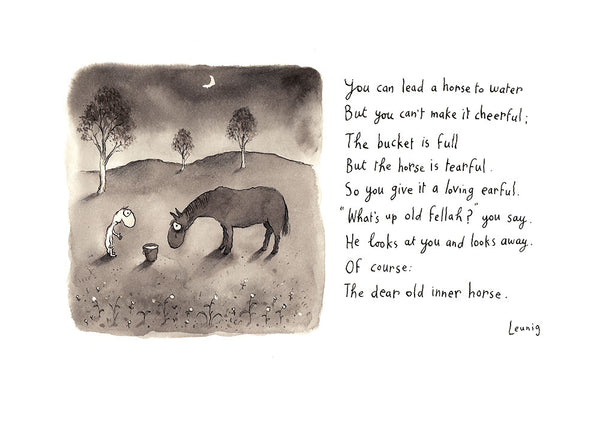 You can lead a horse to water
But you can't make it cheerful;
The bucket is full
But the horse is tearful.
So you give it a loving earful.
"What's up old fellah?" you say.
He looks at you and looks away.
Of course:
The dear old inner horse.
Leunig